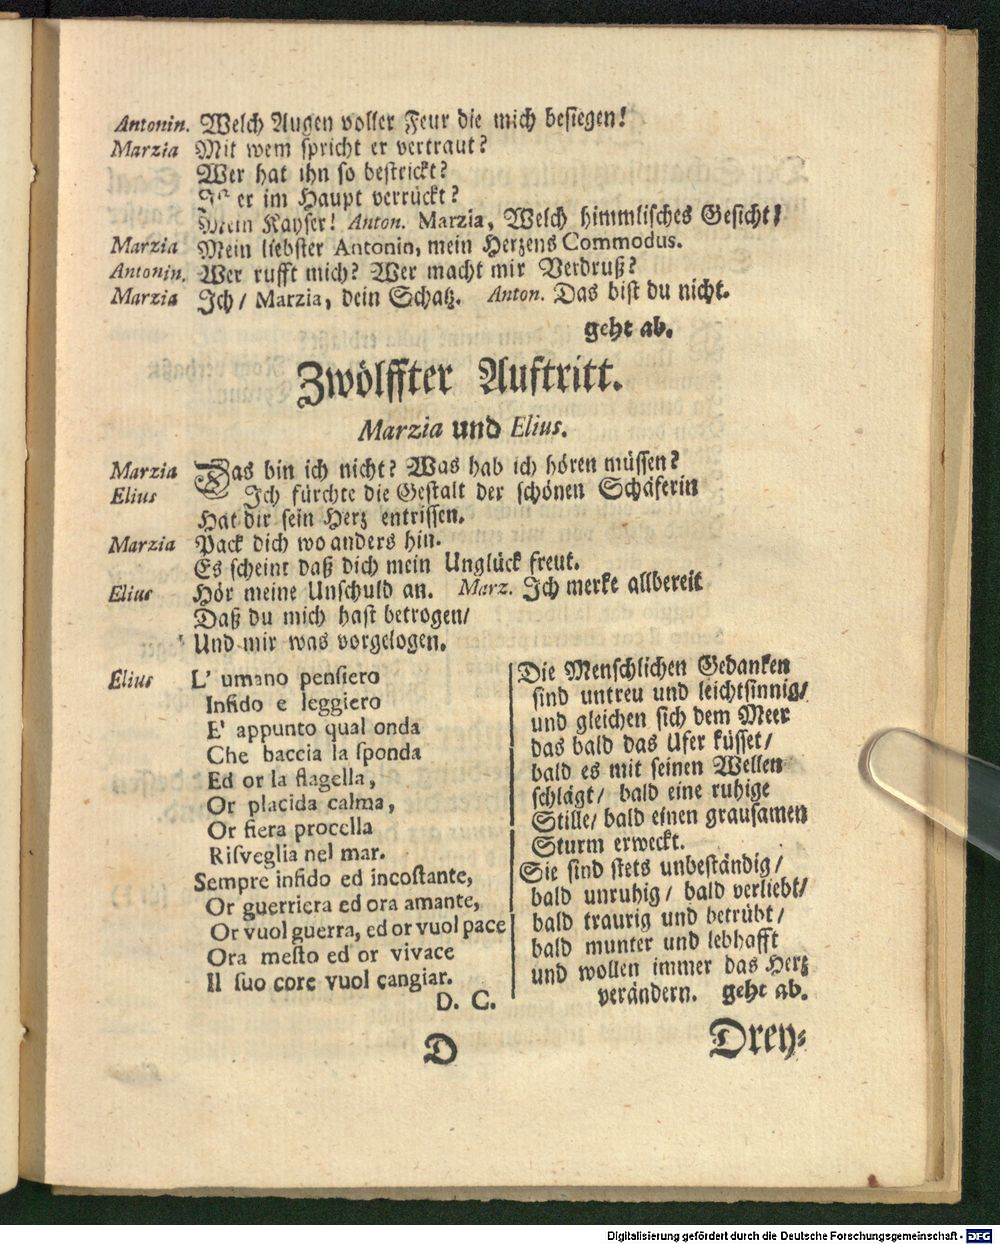 Antonin. Welch Augen voller Feur die mich besiegen!
Marzia Mit wem spricht er vertraut?
Wer hat ihn so bestrickt?
Ist er im Haupt verrückt?
Mein Kayser! Anton. Marzia, Welch himmlisches Gesicht!
Marzia Mein liebster Antonin, mein Herzens Commodus.
Antonin. Wer rufft mich? Wer macht mir Verdruß?
Marzia Ich/ Marzia, dein Schatz. Anton. Das bist du nicht.
geht ab.
Zwölffter Auftritt.
Marzia und Elius.
Marzia Das bin ich nicht? Was hab ich hören müssen?
Elius Ich fürchte die Gestalt der schönen Schäferin
Hat dir sein Herz entrissen.
Marzia Pack dich wo anders hin.
Es scheint daß dich mein Unglück freut.
Elius Hör meine Unschuld an. Marz. Ich merke allbereit
Daß du mich hast betrogen/
Und mir was vorgelogen.
Elius L' umano pensiero
Infido e leggiero
E' appunto qual onda
Che baccia la sponda
Ed or la flagella,
Or placida calma,
Or fiera procella
Risveglia nel mar.
Sempre infido ed incostante,
Or guerriera ed ora amante,
Or vuol guerra, ed or vuol pace
Ora mesto ed or vivace
Il suo core vuol cangiar.
D. C.
Die Menschlichen Gedanken
sind untreu und leichtsinnig/
und gleichen sich dem Meer
das bald das Ufer küsset/
bald es mit seinen Wellen
schlägt/ bald eine ruhige
Stille/ bald einen grausamen
Sturm erweckt.
Sie sind stets unbeständig/
bald unruhig/ bald verliebt/
bald traurig und betrübt/
bald munter und lebhafft
und wollen immer das Hertz
verändern. geht ab.
D
Drey-
Digitalisierung gefördert durch die Deutsche Forschungsgemeinschaft - DFG